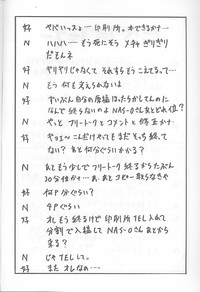 好 ペパハっスょー 印刷所。本できるかナ…
N ハハハー もう死にそう メチャ ぎりぎり
だもんネ
好 ヤリヤリじゃなくて それすら こえてるって…
N もう 何も 考えられないよ
好 ずいぶん 自分の原稿はったらかしてんのに
なんで 終らないの NAS-Oさん あとどれ位?
N やっと フリートークと コメントと 修正かナ…
好 やっェ〜 こんだけやっても まだ どっち 終って
ない? あと何分ぐらいかかる?
N あともう少しで フリートーク 終るからたぶん
30分位かナ… あ、あとコピー 取らなきゃ
好 何P分ぐらい?
N 4Pぐらい
好 オレもう終るけど 印刷所 TEL 入れて
分割で 入稿して NAS-Oさん あとから
来る?
N じゃ TELして。
好 また オレなの…